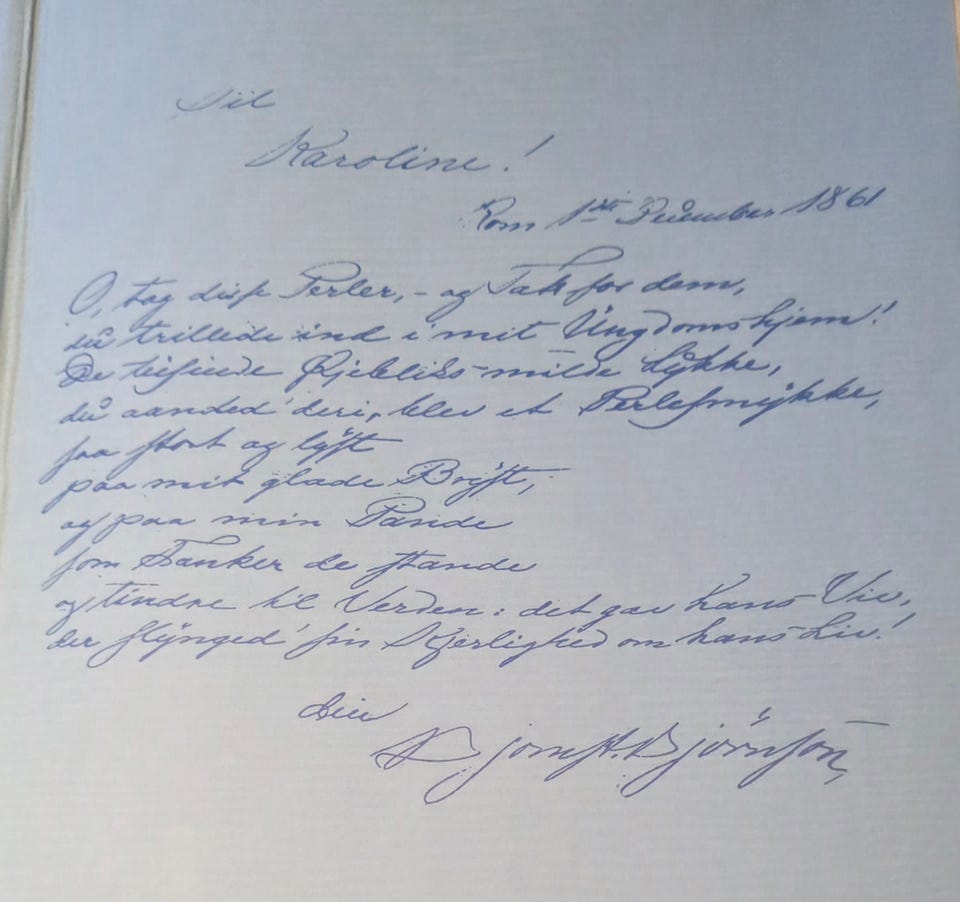 Til
Karoline!
Rom 1ste December 1861
O, tag disse Perler, – og Tak for dem,
du trillede ind i mit Ungdomshjem!
De tusinde Øjebliks-milde Lykke,
du aanded' deri, blev et Perlesmykke,
saa stort og lyst
paa mit glade Bryst,
og paa min Pande
som Tanker de stande
og tindre til Verden: det gav hans Viv,
der slynged' sin Kjerlighed om hans Liv!
din
Bjørnst. Bjørnson